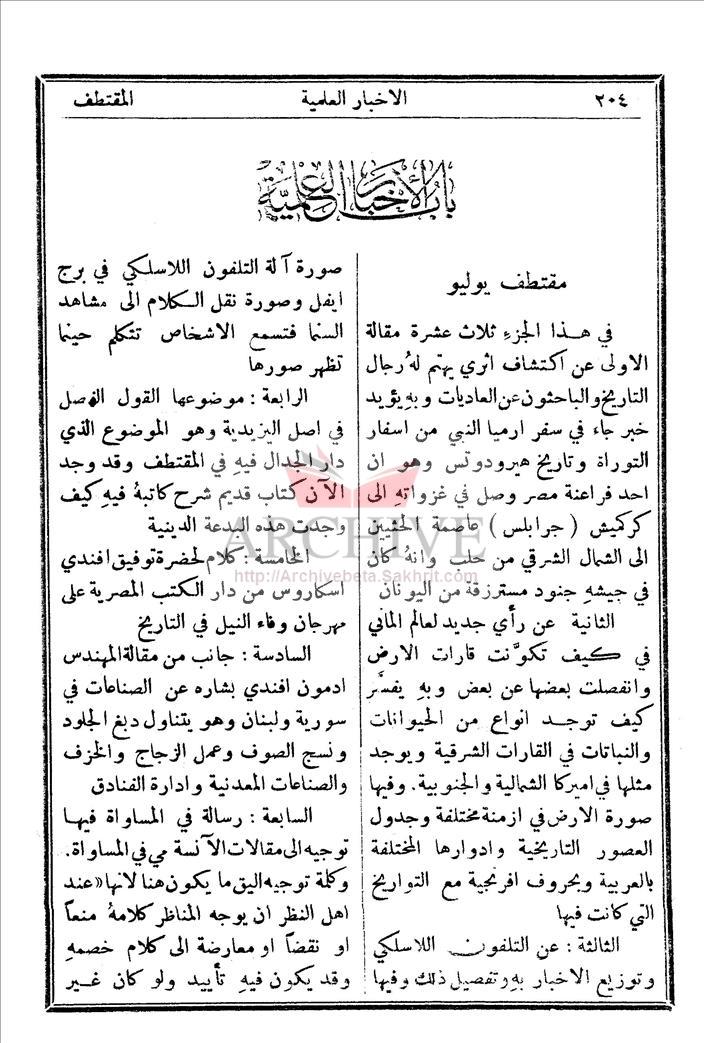 ٢٠٤
الاخبار العلمية
المقتطف
باب الأخبار العلمية
مقتطف يوليو
في هذا الجزء ثلاث عشرة مقالة
الاولى عن اكتشاف اثري يهتم لهُ رجال
التاريخ والباحثون عن العاديات وبهِ يؤيد
خبر جاء في سفر ارميا النبي من اسفار
التوراة وتاريخ هيرودوتس وهو ان
احد فراعنة مصر وصل في غزواتهِ الى
كركميش (جرابلس) عاصمة الحثيين
الى الشمال الشرقي من حلب وانهُ كان
في جيشهِ جنود مسترزقة من اليونان
الثانية عن رأي جديد لعالم الماني
في كيف تكوَّنت قارات الارض
وانفصلت بعضها عن بعض وبهِ يفسَّر
كيف توجد انواع من الحيوانات
والنباتات في القارات الشرقية ويوجد
مثلها في اميركا الشمالية والجنوبية. وفيها
صورة الارض في ازمنة مختلفة وجدول
العصور التاريخية وادوارها المختلفة
بالعربية وبحروف افرنجية مع التواريخ
التي كانت فيها
الثالثة : عن التلفون اللاسلكي
وتوزيع الاخبار بهِ وتفصيل ذلك وفيها
صورة آلة التلفون اللاسلكي في برج
ايفل وصورة نقل الكلام الى مشاهد
السنما فتسمع الاشخاص تتكلم حينما
تظهر صورها
الرابعة : موضوعها القول الفصل
في اصل اليزيدية وهو الموضوع الذي
دار الجدال فيهِ في المقتطف وقد وجد
الآن كتاب قديم شرح كاتبهُ فيهِ كيف
وجدت هذه البدعة الدينية
الخامسة : كلام لحضرة توفيق افندي
اسكاروس من دار الكتب المصرية على
مهرجان وفاء النيل في التاريخ
السادسة : جانب من مقالة المهندس
ادمون افندي بشاره عن الصناعات في
سورية ولبنان وهو يتناول دبغ الجلود
ونسج الصوف وعمل الزجاج والخزف
والصناعات المعدنية وادارة الفنادق
السابعة : رسالة في المساواة فيها
توجيه الى مقالات الآنسة مي في المساواة.
وكلمة توجيه اليق ما يكون هنا لانها «عند
اهل النظر ان يوجه المناظر كلامهُ منعاً
او نقضاً او معارضة الى كلام خصمهِ
وقد يكون فيهِ تأييد ولو كان غير
ARCHIVE
http://Archivebeta.Sakhrit.com